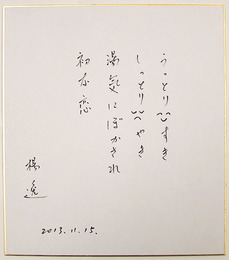 うっとり:;:すき
しっとり:;:やき
湯気にぼかされ
初な恋
楊逸
2013.11.15.